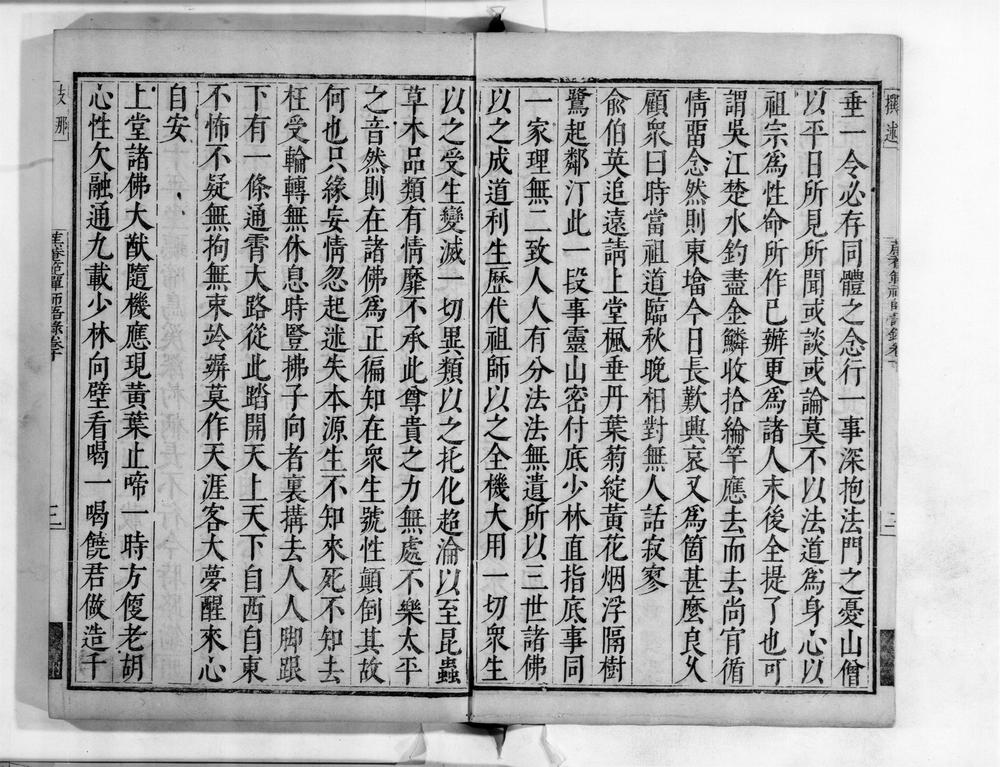 撰述
垂一令必存同體之念行一事深抱法門之憂山僧
以平日所見所聞或談或論莫不以法道為身心以
祖宗為性命所作已辦更為諸人末後全提了也可
謂吳江楚水釣盡金鱗收拾綸竿應去而去尚宜循
情畱念然則東㙮今日長歎興哀又為箇甚麼良久
顧衆曰時當祖道臨秋晚相對無人話寂寥
俞伯英追遠請上堂楓垂丹葉菊綻黃花烟浮隔樹
鷺起鄰汀此一段事靈山密付底少林直指底事同
一家理無二致人人有分法法無遺所以三世諸佛
以之成道利生歷代祖師以之全機大用一切衆生
以之受生變滅一切異類以之托化超淪以至昆蟲
草木品類有情靡不承此尊貴之力無處不樂太平
之音然則在諸佛為正徧知在衆生號性顛倒其故
何也只緣妄情忽起迷失本源生不知來死不知去
枉受輪轉無休息時豎拂子向者裏搆去人人脚跟
下有一條通霄大路從此踏開天上天下自西自東
不怖不疑無拘無束竛竮莫作天涯客大夢醒來心
自安
上堂諸佛大猷隨機應現黃葉止啼一時方便老胡
心性欠融通九載少林向壁看喝一喝饒君做造千
支那
二